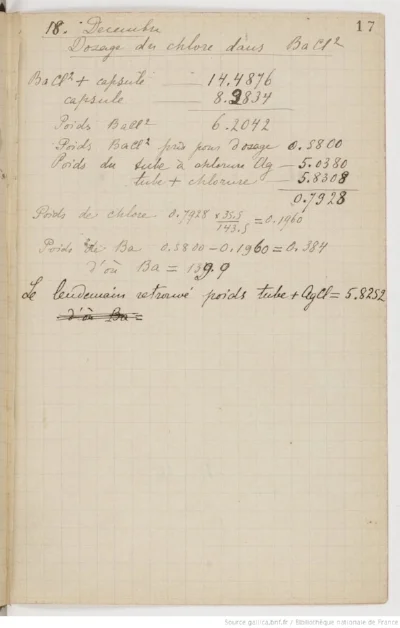 18. Decembre 17
Dosage du chlore dans BaCl²
BaCl² + capsule — 14.4876
capsule — 8.2834
Poids BaCl² 6.2042
Poids BaCl² pris pour dosage 0.5800
Poids du tube à chlorure Ag — 5.0380
tube + chlorure — 5.8308
0.7928
Poids de chlore 0.7928 × 35.5 / 143.5 = 0.1960
Poids de Ba 0.5800 – 0.1960 = 0.384
d'où Ba = 139.9
Le lendemain retrouvé poids tube + AgCl = 5.8252
d'où Ba =
Source gallica.bnf.fr / Bibliothèque nationale de France